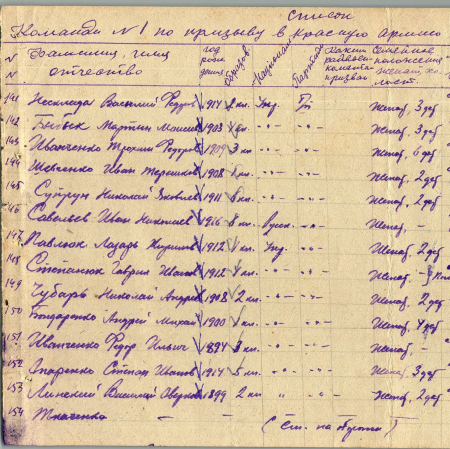 Список
Команды №1 по призыву в красную армию
N N Фамилия, имя отчество год рождения Образов. Национал Партийн Каким райвоенкоматом призван Семейное положение женат, холост.
141 Василий Федор 1914 2 кл. Укр. женат, 3 дет
142 Мартин 1903 кл. -"- -"- женат, 3 дет
143 Иванченко Трохим Федоров 1909 3 кл -"- -"- женат, 6 дет
144 Шевченко Иван 1908 кл. -"- -"- женат, 2 дет
145 Николай Яковлев 1911 кл. -"- -"- женат, 2 дет
146 Савельев Иван Николаев 1916 8 кл. Русск. -"- женат, -
147 Павлюк Лазарь 1912 кл. Укр. -"- женат, 2 дет
148 Степанюк Гаврил Иванов 1912 4 кл. -"- -"- женат, -
149 Чубарь Николай Андреев 1908 2 кл. -"- -"- женат, 2 дет
150 Бондаренко Андрей Михай 1900 кл. -"- -"- женат, 4 дет
151 Иванченко Федор Ильич 1894 3 кл. -"- -"- женат, -
152 Степан Иванов 1914 5 кл. -"- -"- женат, 3 дет
153 Линский Василий 1899 2 кл " " женат, 2 дет
154 Ткаченко - -
(См. на обороте)